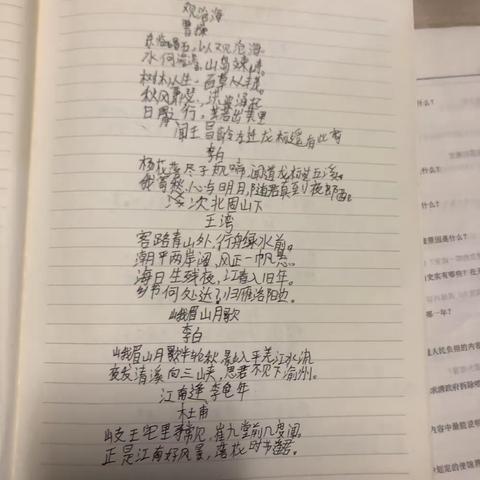 观沧海
曹操
东临碣石，以观沧海。
水何澹澹，山岛竦峙。
树木丛生，百草丛茂。
秋风萧瑟，洪
日月之行，若出其里
闻王昌龄左迁龙标遥有此寄
李白
杨花落尽子规啼，闻道龙标过五溪。
我寄愁心与明月，随君直到夜郎西。
次北固山下
王湾
客路青山外，行舟绿水前。
潮平两岸阔，风正一帆悬。
海日生残夜，江春入旧年。
乡书何处达？归雁洛阳边。
峨眉山月歌
李白
峨眉山月歌半轮秋，影入平羌江水流
夜发清溪向三峡，思君不见下渝州。
江南逢李龟年
杜甫
岐王宅里寻常见，崔九堂前几度闻。
正是江南好风景，落花时节君。
么？
什么？
原因是什么？
哪一年？
人民负担的内容
求清政府拆除
内容中最能说明